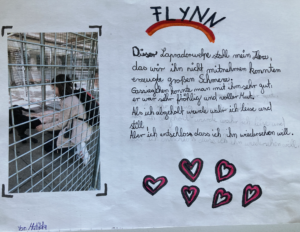 FLYNN
Dieser Labradorwelpe stahl mein Herz,
das wir ihn nicht mitnehmen konnten
erzeugte großen Schmerz.
Gassigehen konnte man mit ihm sehr gut,
er war sehr fröhlich und voller Mut.
Als ich abgeholt wurde war ich leise und
still.
Aber ich entschloss dass ich ihn wiedersehen will.